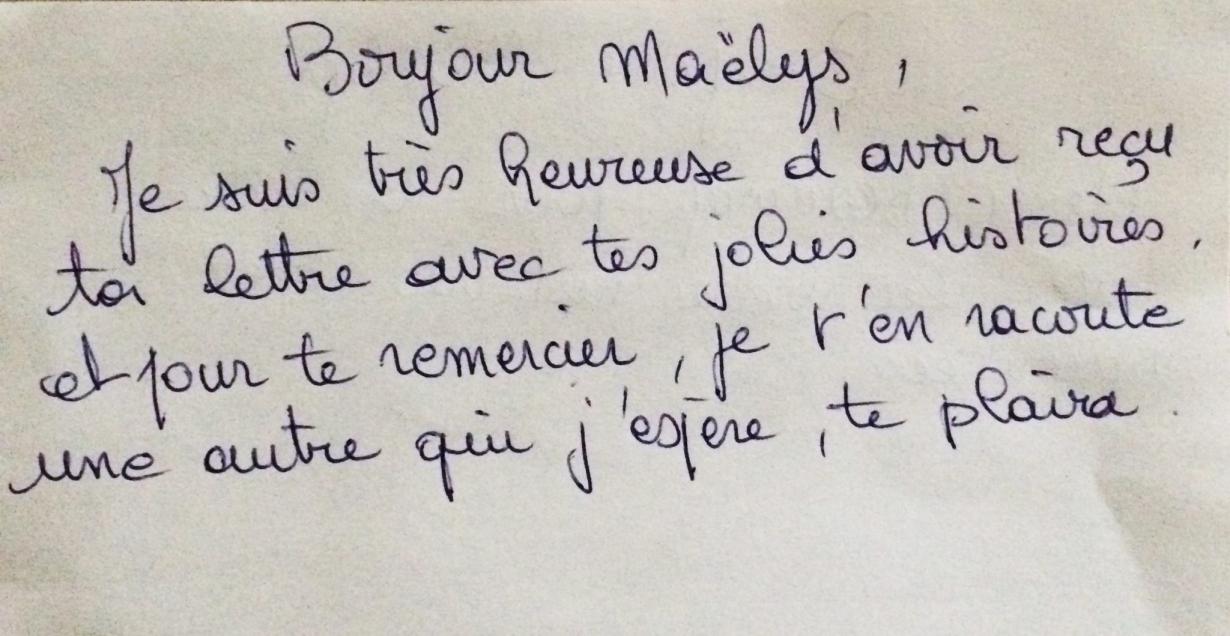 Bonjour Maëlys,
Je suis très heureuse d'avoir reçu
ta lettre avec tes jolies histoires,
et pour te remercier, je t'en raconte
une autre qui j'espère, te plaira.